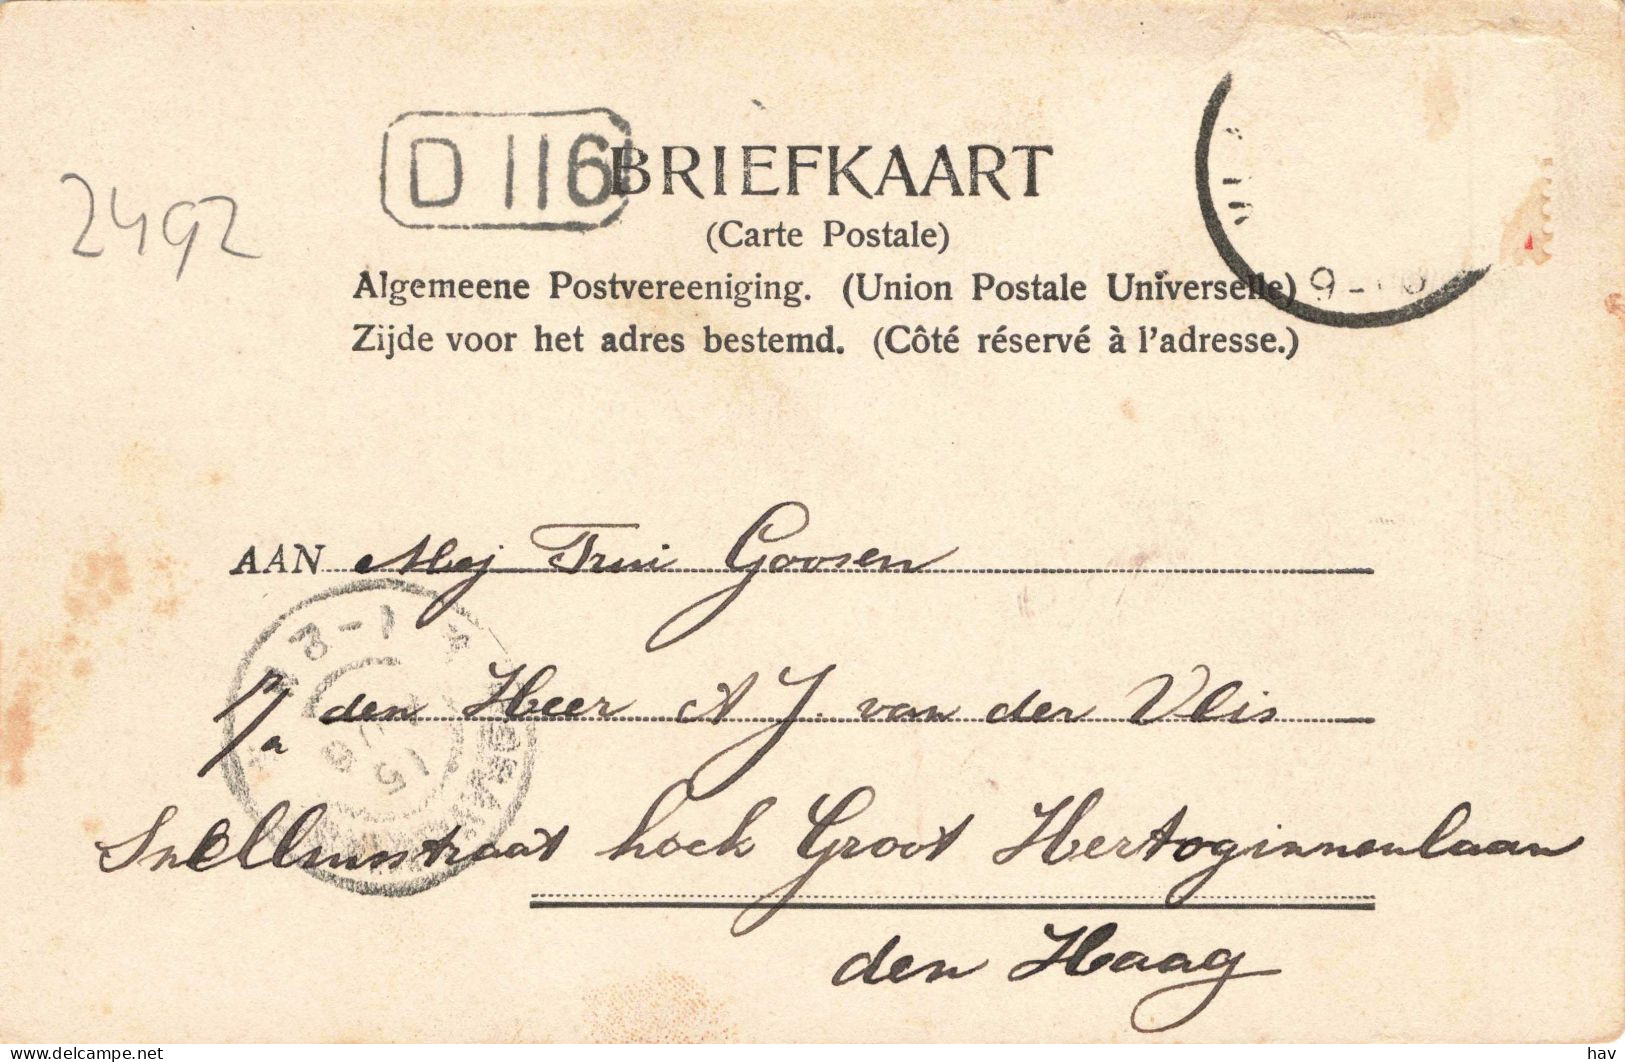 2492
D 116
BRIEFKAART
(Carte Postale)
Algemeene Postvereeniging. (Union Postale Universelle)
Zijde voor het adres bestemd. (Côté réservé à l'adresse.)
9-
AAN Mej Trui Goosen
1-2
p/a den Heer A J. van der Vlis
15
Snelliusstraat hoek Groot Hertoginnenlaan
den Haag
www.delcampe.net
hav